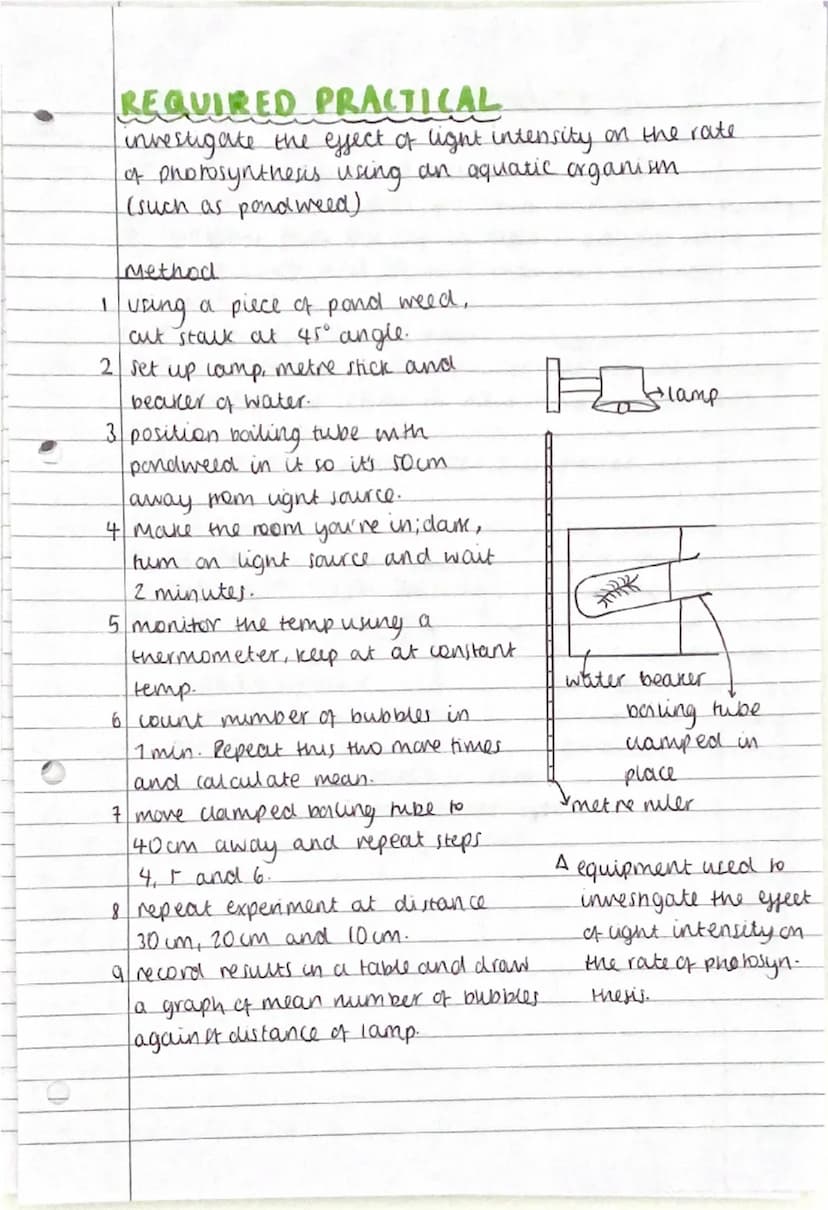 REQUIRED PRACTICAL
investigate the effect of light intensity on the rate
of photosynthesis using an aquatic organism
(such as pondweed)
Method
1 using a piece of pond weed,
cut stalk at 45° angle.
2 set up lamp, metre stick and
beaker of water.
3 position boiling tube with
pondweed in it so it's 50cm
away from light source.
4 Make the room you're in; dark,
turn on light source and wait
2 minutes.
5 monitor the temp using a
thermometer, keep at at constant
temp.
6 count number of bubbles in
1 min. Repeat this two more times
and calculate mean.
7 move clamped boiling tube to
40cm away and repeat steps
4, 5 and 6.
8 repeat experiment at distance
30cm, 20cm and 10cm.
9 record results in a table and draw
a graph of mean number of bubbles
against distance of lamp.
lamp
water beaker
boiling tube
clamped in
place
metre ruler
equipment used to
investigate the effect
of light intensity on
the rate of photosyn-
thesis.